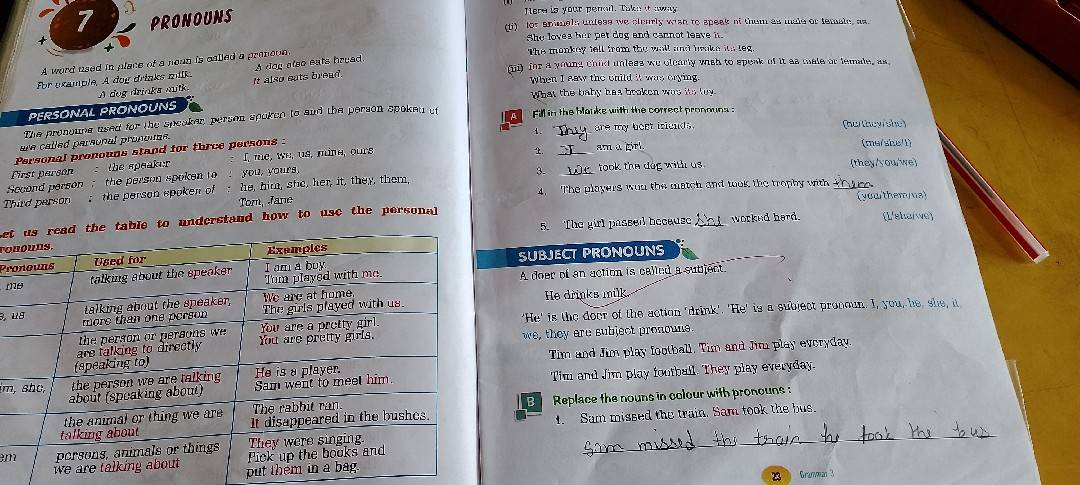 7 PRONOUNS
A word used in place of a noun is called a pronoun.
For example, A dog drinks milk. A dog also eats bread.
A dog drinks milk. It also eats bread.
PERSONAL PRONOUNS
The pronouns used for the speaker, person spoken to and the person spoken of
are called personal pronouns.
Personal pronouns stand for three persons :
First person : the speaker : I, me, we, us, mine, ours
Second person : the person spoken to : you, yours,
Third person : the person spoken of : he, him, she, her, it, they, them,
Tom, Jane
et us read the table to understand how to use the personal
ronouns.
Pronouns Used for Examples
me talking about the speaker I am a boy.
Tom played with me.
, us talking about the speaker, We are at home.
more than one person The girls played with us.
the person or persons we You are a pretty girl.
are talking to directly You are pretty girls.
(speaking to)
m, she, the person we are talking He is a player.
about (speaking about) Sam went to meet him.
the animal or thing we are The rabbit ran.
talking about It disappeared in the bushes.
em persons, animals or things They were singing.
we are talking about Pick up the books and
put them in a bag.
Here is your pencil. Take it away.
(ii) for animals unless we clearly wish to speak of them as male or female, as,
She loves her pet dog and cannot leave it.
The monkey fell from the wall and broke its leg.
(iii) for a young child unless we clearly wish to speak of it as male or female, as,
When I saw the child it was crying.
What the baby has broken was its toy.
A Fill in the blanks with the correct pronouns :
1. They are my best friends. (he/they/she)
2. I am a girl. (me/she/I)
3. We took the dog with us. (they/you/we)
4. The players won the match and took the trophy with them
(you/them/us)
5. The girl passed because she worked hard. (I/she/we)
SUBJECT PRONOUNS
A doer of an action is called a subject.
He drinks milk.
'He' is the doer of the action 'drink'. 'He' is a subject pronoun. I, you, he, she, it,
we, they are subject pronouns.
Tim and Jim play football. Tim and Jim play everyday.
Tim and Jim play football. They play everyday.
B Replace the nouns in colour with pronouns :
1. Sam missed the train. Sam took the bus.
Sam missed the train he took the bus
23 Grammar-3